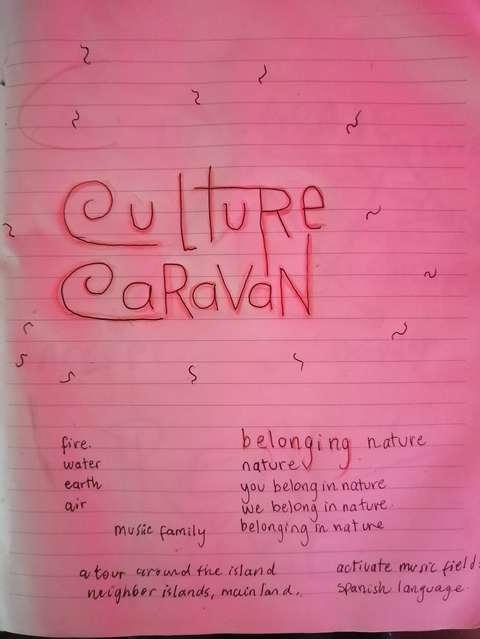 Culture
Caravan
fire.
water
earth
air
music family
belonging nature
nature
you belong in nature
we belong in nature.
belonging in nature
a tour around the island
neighbor islands, mainland.
activate music fields
Spanish language.